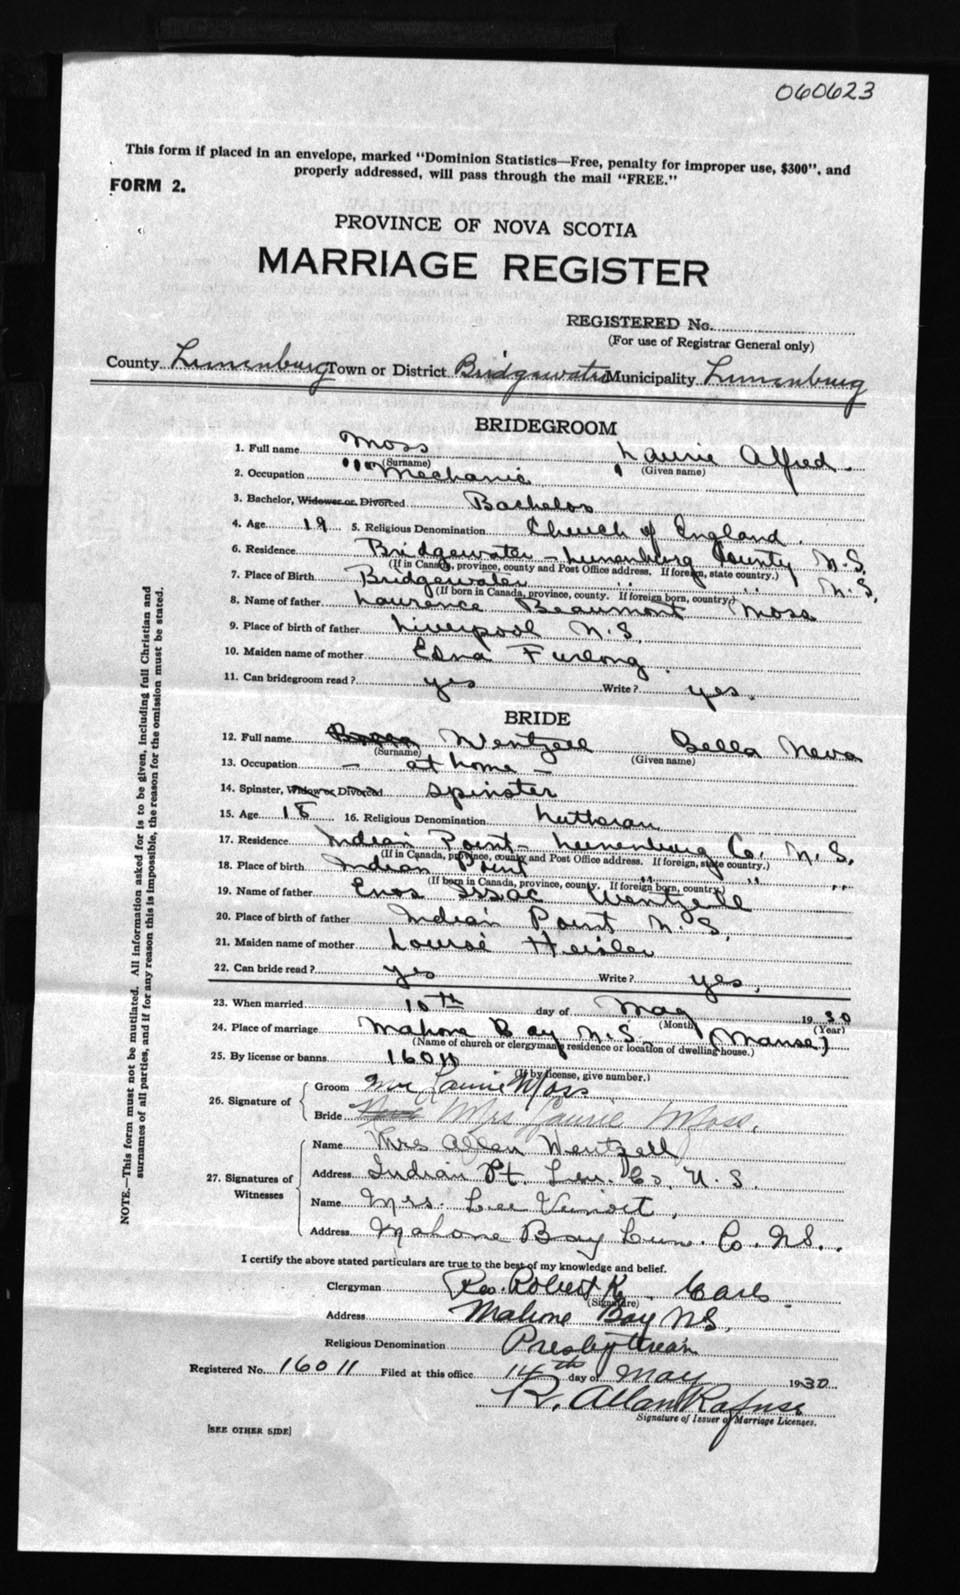 060623
This form if placed in an envelope, marked "Dominion Statistics—Free, penalty for improper use, $300", and
properly addressed, will pass through the mail "FREE."
FORM 2.
PROVINCE OF NOVA SCOTIA
MARRIAGE REGISTER
REGISTERED No.
(For use of Registrar General only)
County Lunenburg Town or District Bridgewater Municipality Lunenburg
BRIDEGROOM
1. Full name Moss Laurie Alfred
(Surname) (Given name)
2. Occupation Mechanic
3. Bachelor, Widower or Divorced Bachelor
4. Age 19 5. Religious Denomination Church of England
6. Residence Bridgewater - Lunenburg County N.S.
(If in Canada, province, county and Post Office address. If foreign, state country.)
7. Place of Birth Bridgewater " " N.S.
(If born in Canada, province, county. If foreign born, country.)
8. Name of father Laurence Beaumont Moss
9. Place of birth of father Liverpool N.S.
10. Maiden name of mother Edna Furlong
11. Can bridegroom read? yes Write? yes.
BRIDE
12. Full name Wentzell Bella Neva
(Surname) (Given name)
13. Occupation — at home —
14. Spinster, Widow or Divorced Spinster
15. Age 18 16. Religious Denomination Lutheran
17. Residence Indian Point - Lunenburg Co. N.S.
(If in Canada, province, county and Post Office address. If foreign, state country.)
18. Place of birth Indian Point " " "
(If born in Canada, province, county. If foreign born, country.)
19. Name of father Enos Issac Wentzell
20. Place of birth of father Indian Point N.S.
21. Maiden name of mother Louise Heisler
22. Can bride read? yes Write? yes.
23. When married 10th day of May 1930
(Month) (Year)
24. Place of marriage Mahone Bay N.S. (Manse)
(Name of church or clergyman's residence or location of dwelling house.)
25. By license or banns 16011
(If by license, give number.)
26. Signature of Groom Mr Laurie Moss
Bride Mrs Laurie Moss.
27. Signatures of Witnesses Name Mrs Allen Wentzell
Address Indian Pt. Lun. Co. N.S.
Name Mrs. Lee Veinot,
Address Mahone Bay Lun. Co. N.S.
I certify the above stated particulars are true to the best of my knowledge and belief.
Clergyman Rev. Robert K. Earls
(Signature)
Address Mahone Bay NS.
Religious Denomination Presbyterian
Registered No. 16011 Filed at this office 14th day of May 1930
R. Allan Rafuse
Signature of Issuer of Marriage Licenses.
[SEE OTHER SIDE]
NOTE.—This form must not be mutilated. All information asked for is to be given, including full Christian and
surnames of all parties, and if for any reason this is impossible, the reason for the omission must be stated.